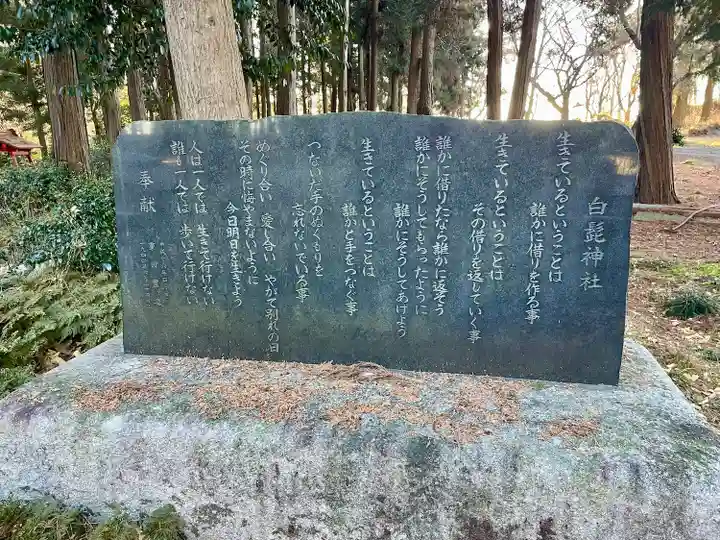 白髭神社
生きているということは
誰かに借りを作る事
生きているということは
その借りを返していく事
誰かに借りたなら誰かに返そう
誰かにそうしてもらったように
誰かにそうしてあげよう
生きているということは
誰かと手をつなぐ事
つないだ手のぬくもりを
忘れないでいる事
めぐり合い 愛し合い やがて別れの日
その時に悔やまないように
今日明日を生きよう
人は一人では 生きて行けない
誰も一人では 歩いて行けない
奉献